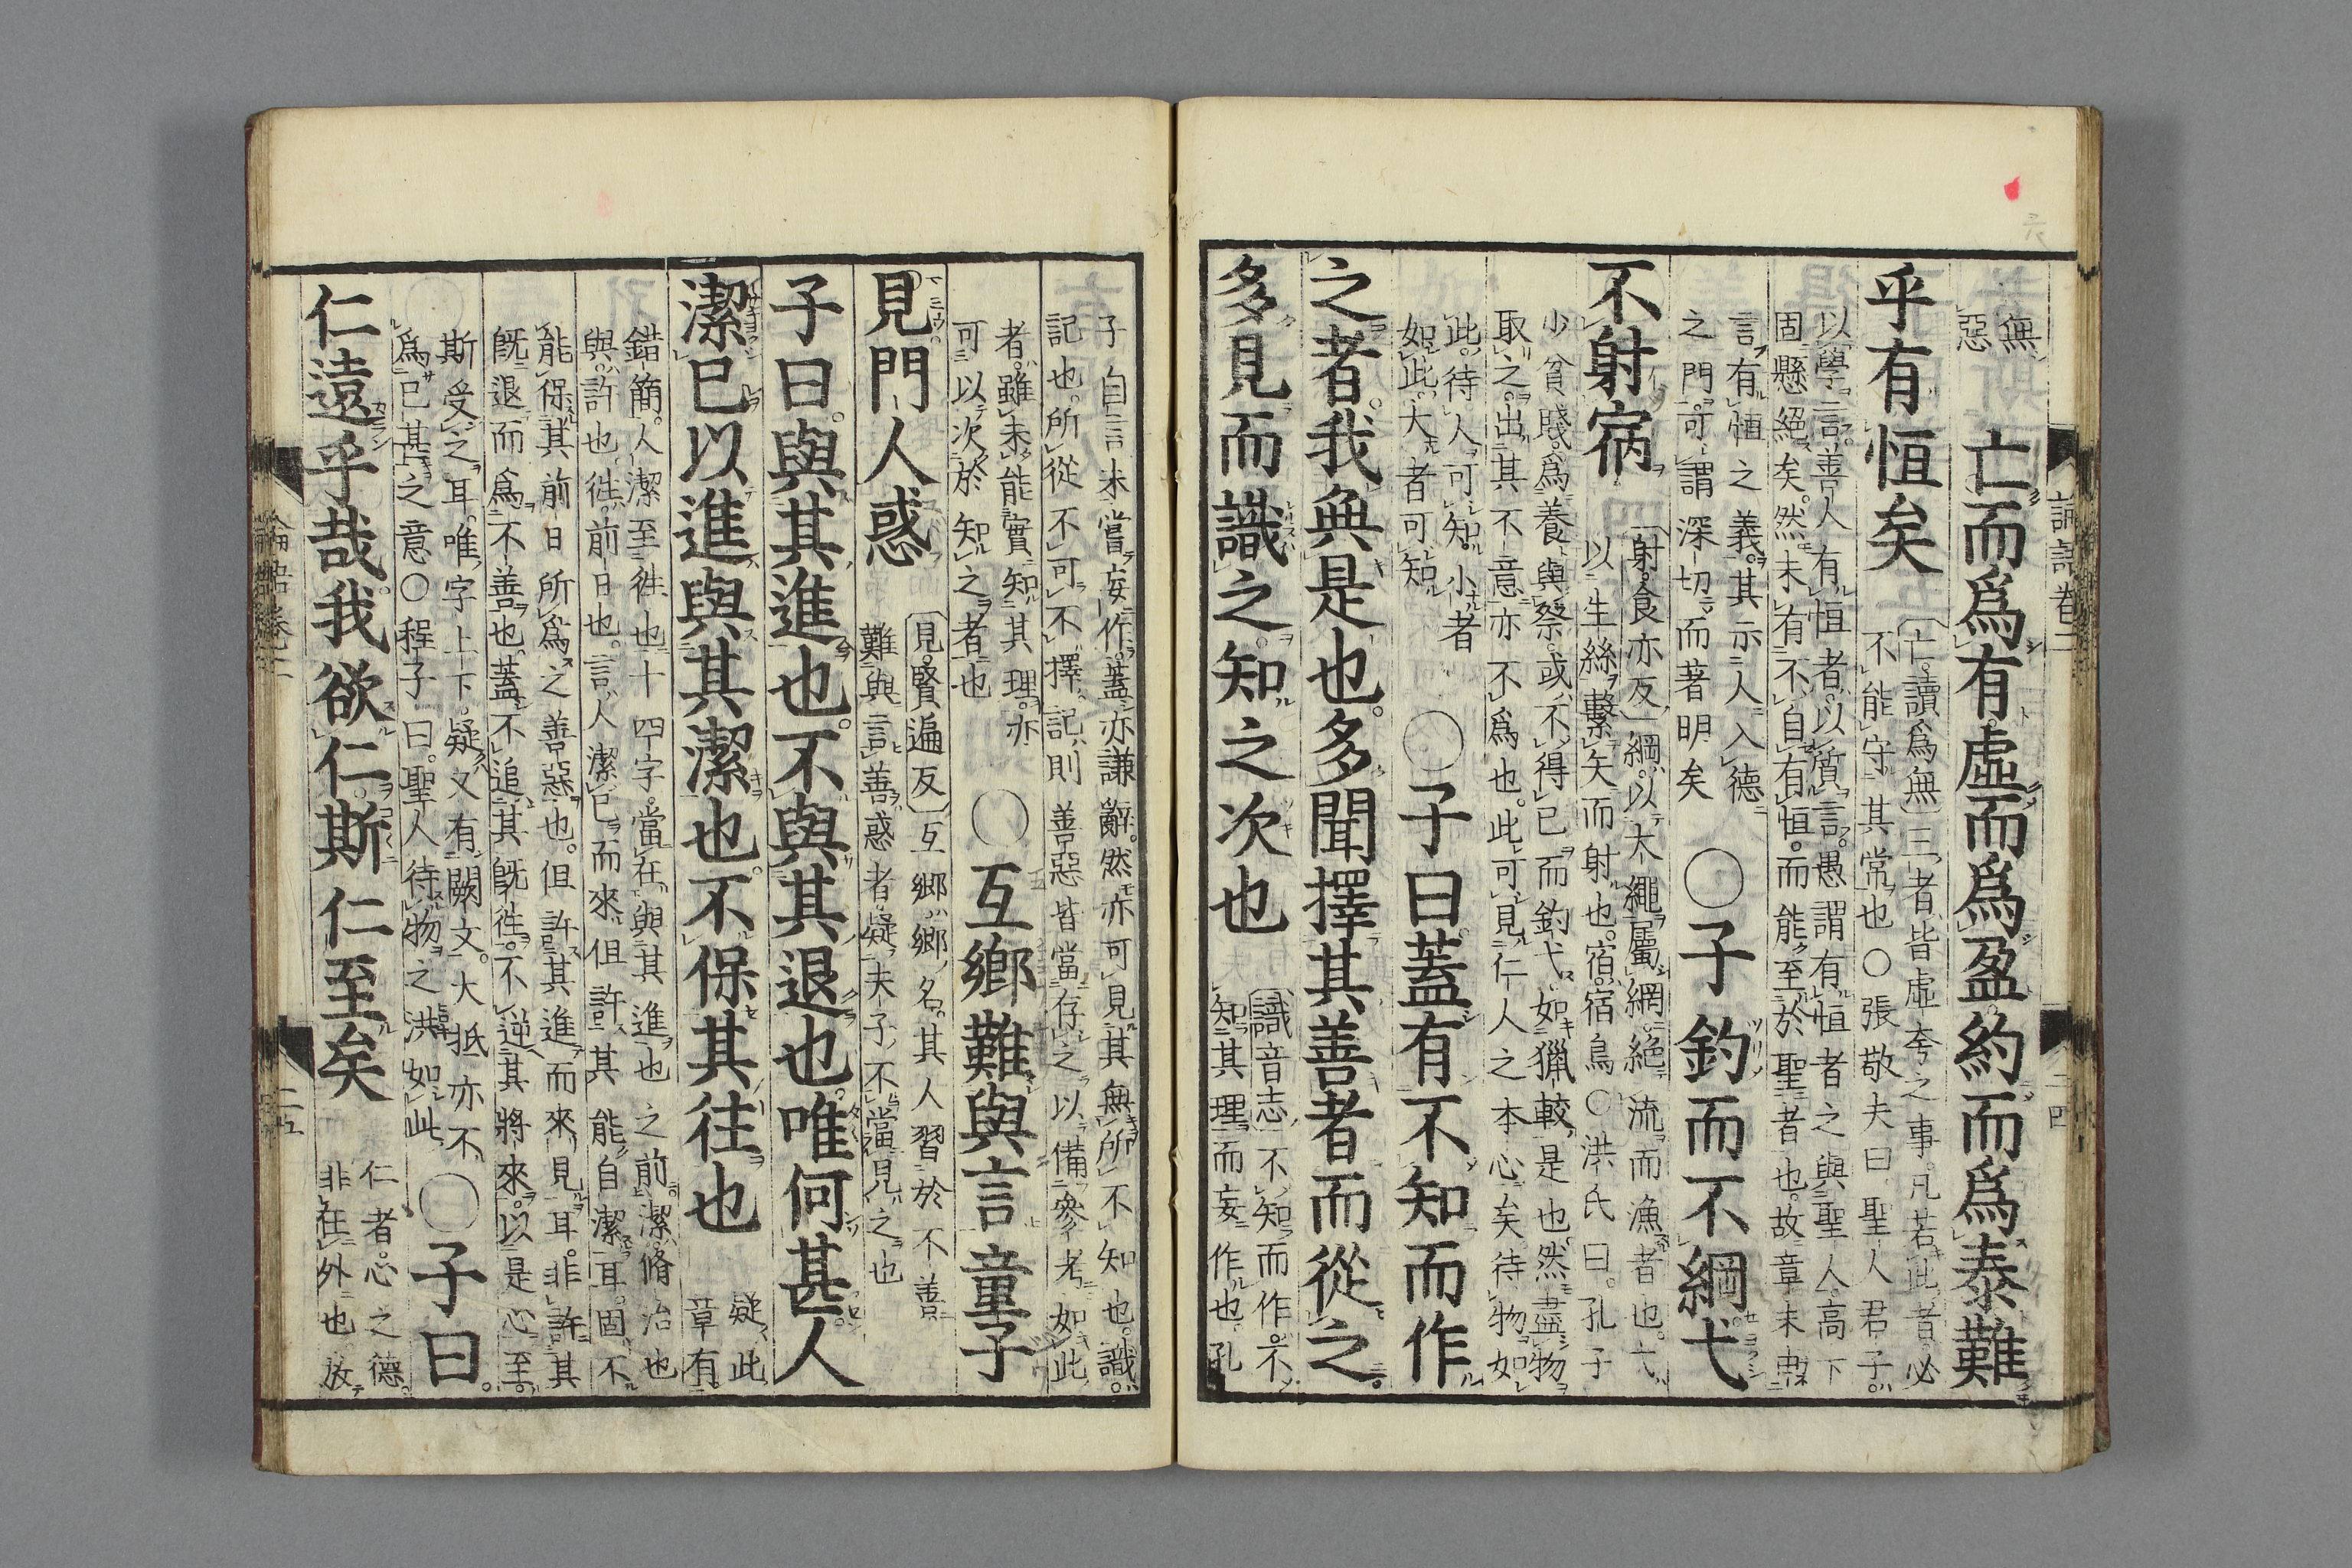 無
惡
亡而爲有虛而爲盈約而爲泰難
乎有恒矣
亡讀爲無三者皆虛夸之事凡若此者必
不能守其常也〇張敬夫曰聖人君子
以學言善人有恒者以質言愚謂有恒者之與聖人高下
固懸絕矣然未有不自有恒而能至於聖者也故章末
言有恒之義其示人入德
之門可謂深切而著明矣
〇子釣而不綱弋
不射宿
射食亦反綱以大繩屬網絕流而漁者也弋
以生絲繫矢而射也宿宿鳥〇洪氏曰孔子
少貧賤爲養與祭或不得已而釣弋如獵較是也然盡物
取之出其不意亦不爲也此可見仁人之本心矣待物如
此待人可知小者
如此大者可知
〇子曰蓋有不知而作
之者我無是也多聞擇其善者而從之
多見而識之知之次也
識音志不知而作不
知其理而妄作也孔
子自言未嘗妄作蓋亦謙辭然亦可見其無所不知也識
記也所從不可不擇記則善惡皆當存之以備參考如此
者雖未能實知其理亦
可以次於知之者也
〇互鄉難與言童子
見門人惑
見賢遍反互鄉鄉名其人習於不善
難與言善惑者疑夫子不當見之也
子曰與其進也不與其退也唯何甚人
潔已以進與其潔也不保其往也
疑此
章有
錯簡人潔至徃也十四字當在與其進也之前潔脩治也
與許也徃前日也言人潔已而來但許其能自潔耳固不
能保其前日所爲之善惡也但許其進而來見耳非許其
旣退而爲不善也蓋不追其旣徃不逆其將來以是心至
斯受之耳唯字上下疑又有闕文大抵亦不
爲已甚之意〇程子曰聖人待物之洪如此
〇子曰
仁遠乎哉我欲仁斯仁至矣
仁者心之德
非在外也放
論語卷二
二四
論語卷二
二五